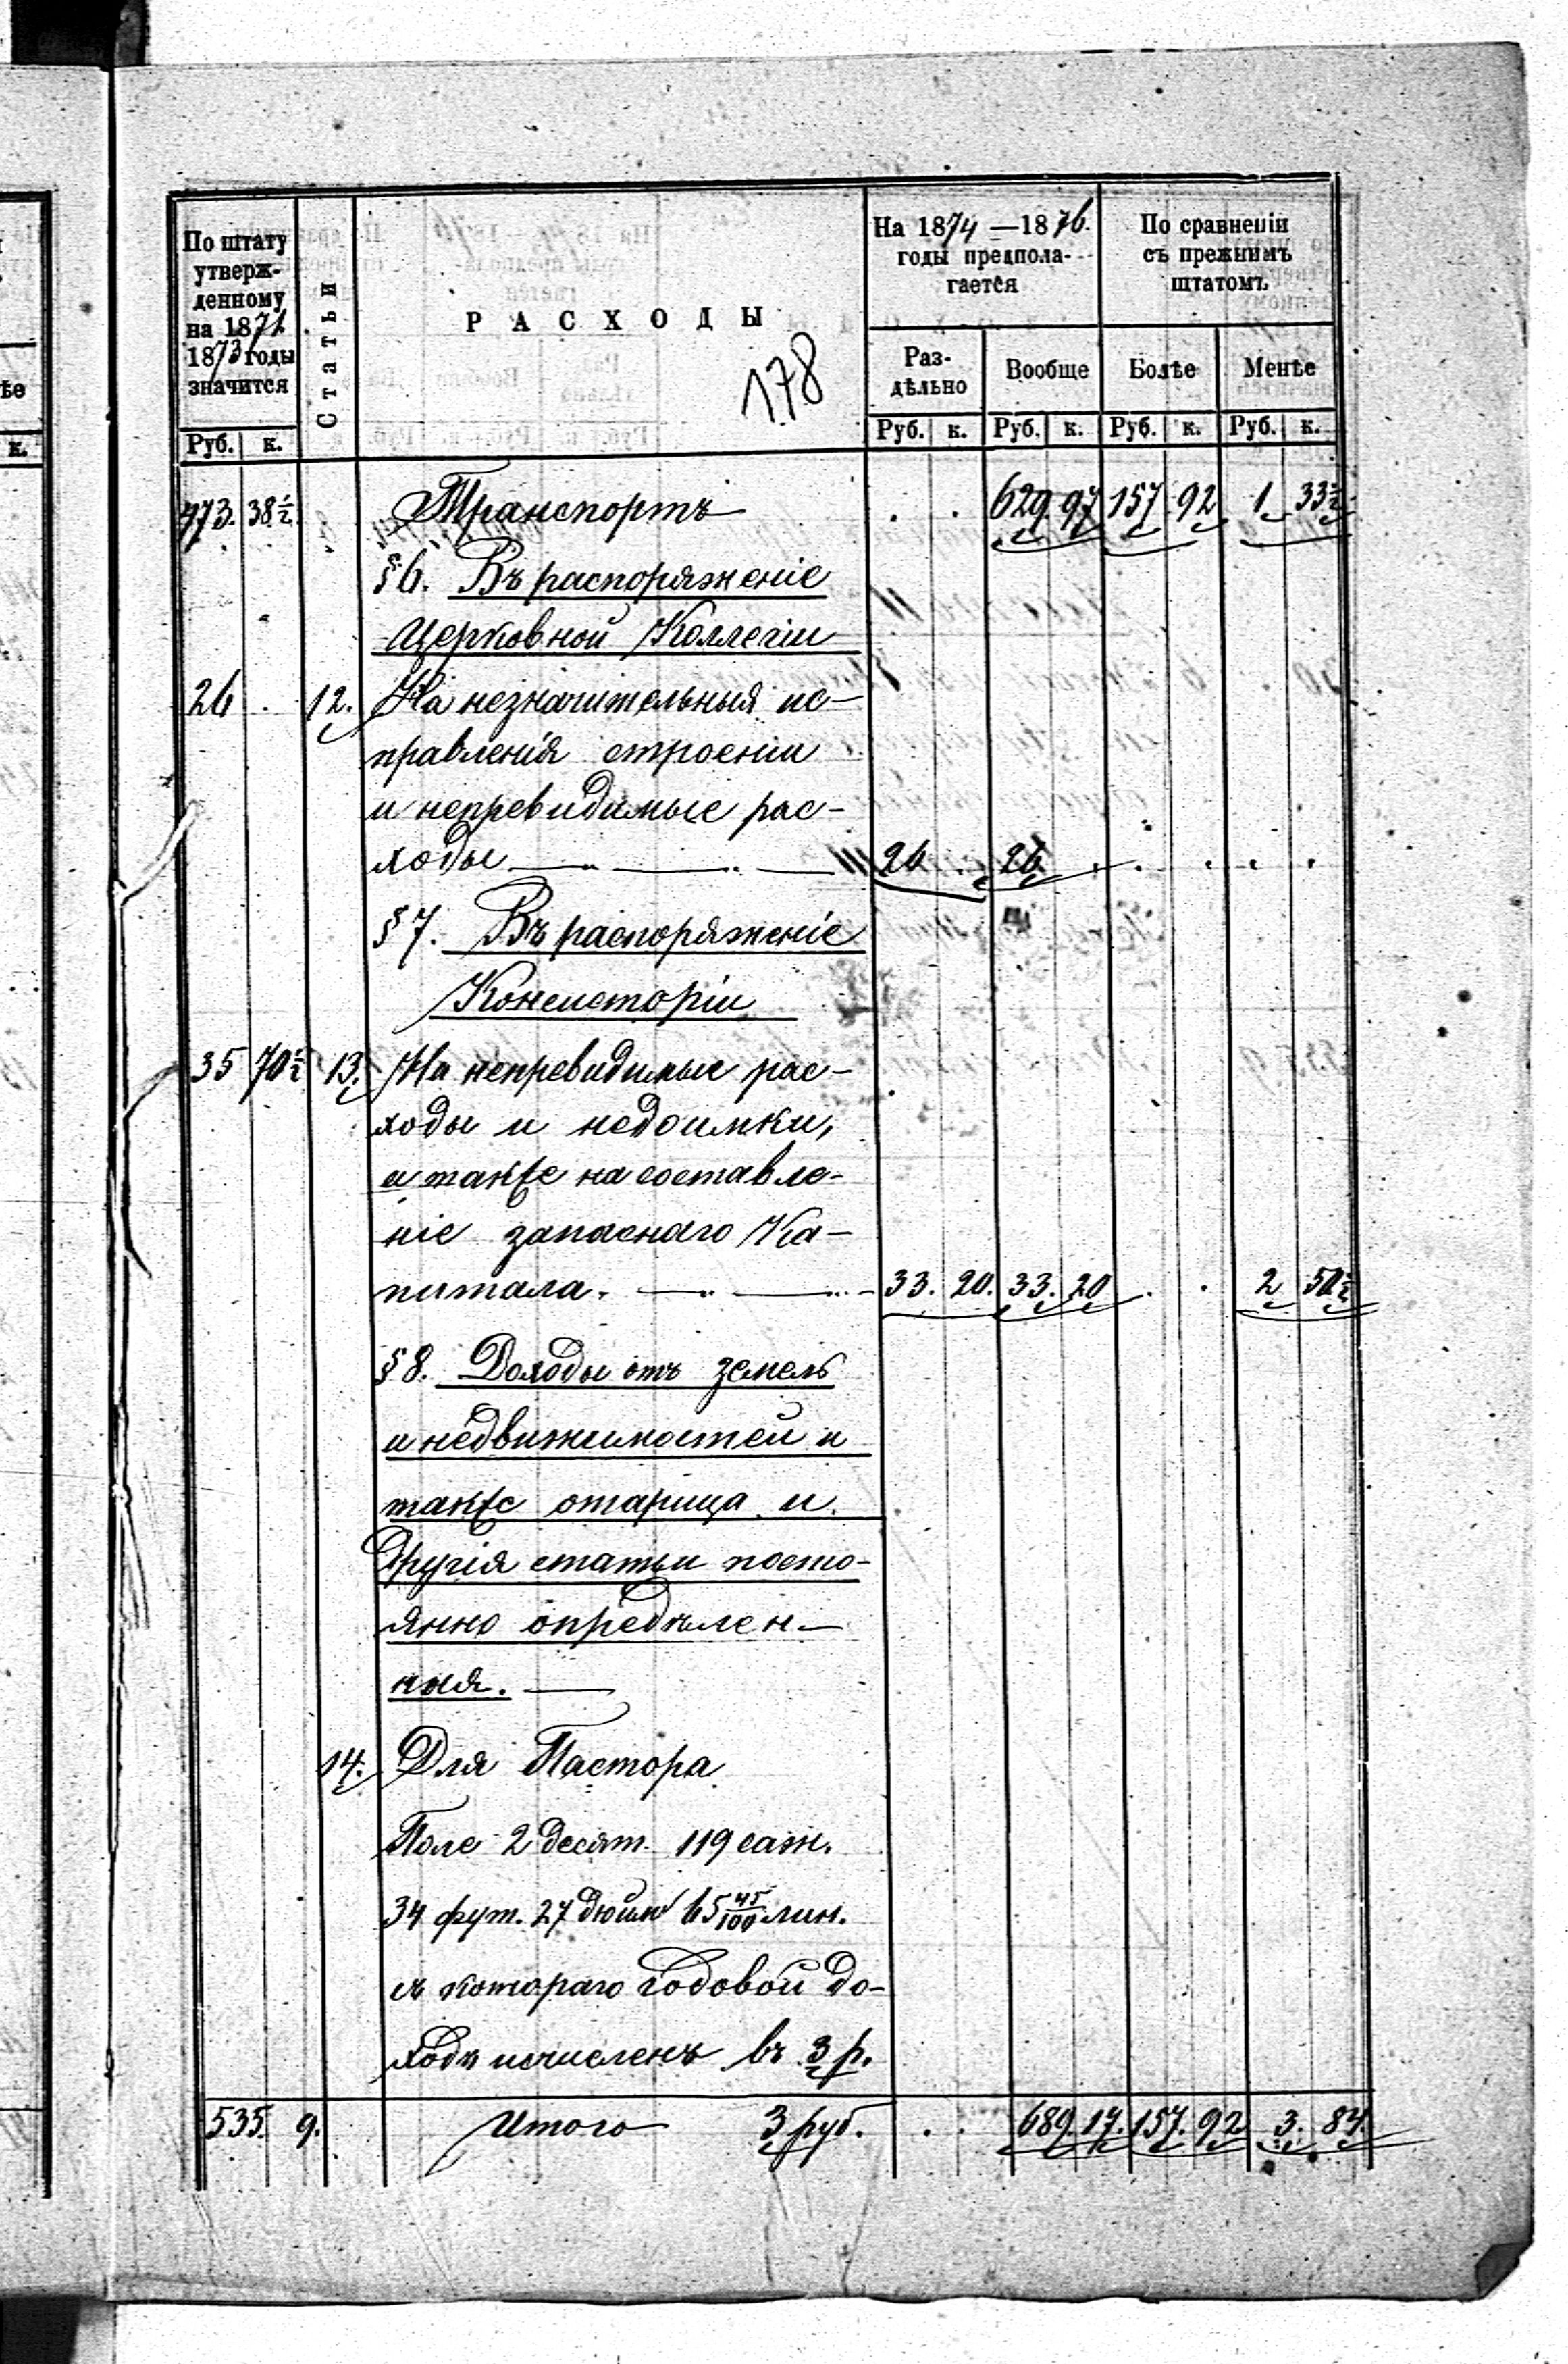 По штату
утверж-
денному
на 1871
1873 годы
значится
Статьи
РАСХОДЫ
178
На 1874—1876.
годы предпола-
гается
По сравненіи
съ прежнимъ
штатомъ
Раз-
дѣльно
Вообще
Болѣе
Менѣе
Руб. к. Руб. к. Руб. к. Руб. к. Руб. к.
473. 38½ Транспортъ . . 629 97 157 92 1 33½
§ 6. Въ распоряженіе
Церковной Коллегіи
26 . 12. На незначительныя ис-
правленія строеніи
и непревидимые рас-
ходы 26 . 26. . . . . .
§ 7. Въ распоряженіе
Консисторіи
35 70½ 13. На непревидимые рас-
ходы и недоимки,
а также на составле-
ніе запаснаго Ка-
питала. 33. 20. 33. 20 . . 2 50½
§ 8. Доходы отъ земель
и недвижимостей и
также отарица и
другія статьи посто-
янно опредѣлен-
ныя.
14. Для Пастора
Поле 2 десят. 119 саж.
34 фут. 27 дюйм 65 45/100 лин.
съ котораго годовой до-
ходъ исчисленъ въ 3 р.
535. 9. Итого 3 руб. . . 689. 17. 157. 92 3. 84.
ѣе
к.